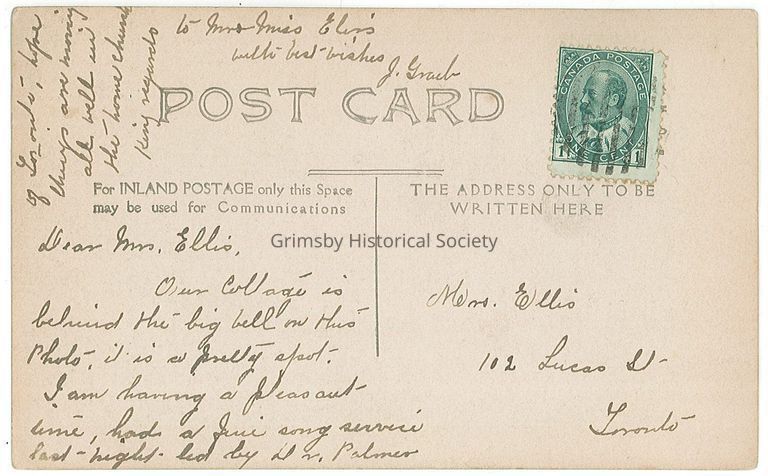 to Mrs Miss Ellis
with best wishes
J. Graeb
of Toronto, hope
things are moving
all well in
the home church
King regards
POST CARD
CANADA POSTAGE
1 ONE CENT 1
For INLAND POSTAGE only this Space
may be used for Communications
THE ADDRESS ONLY TO BE
WRITTEN HERE
Grimsby Historical Society
Dear Mrs. Ellis,
Our Cottage is
behind the big bell on this
Photo, it is a pretty spot.
I am having a pleasant
time, had a fine song service
last night led by Dr. Palmer
Mrs. Ellis
102 Lucas St
Toronto